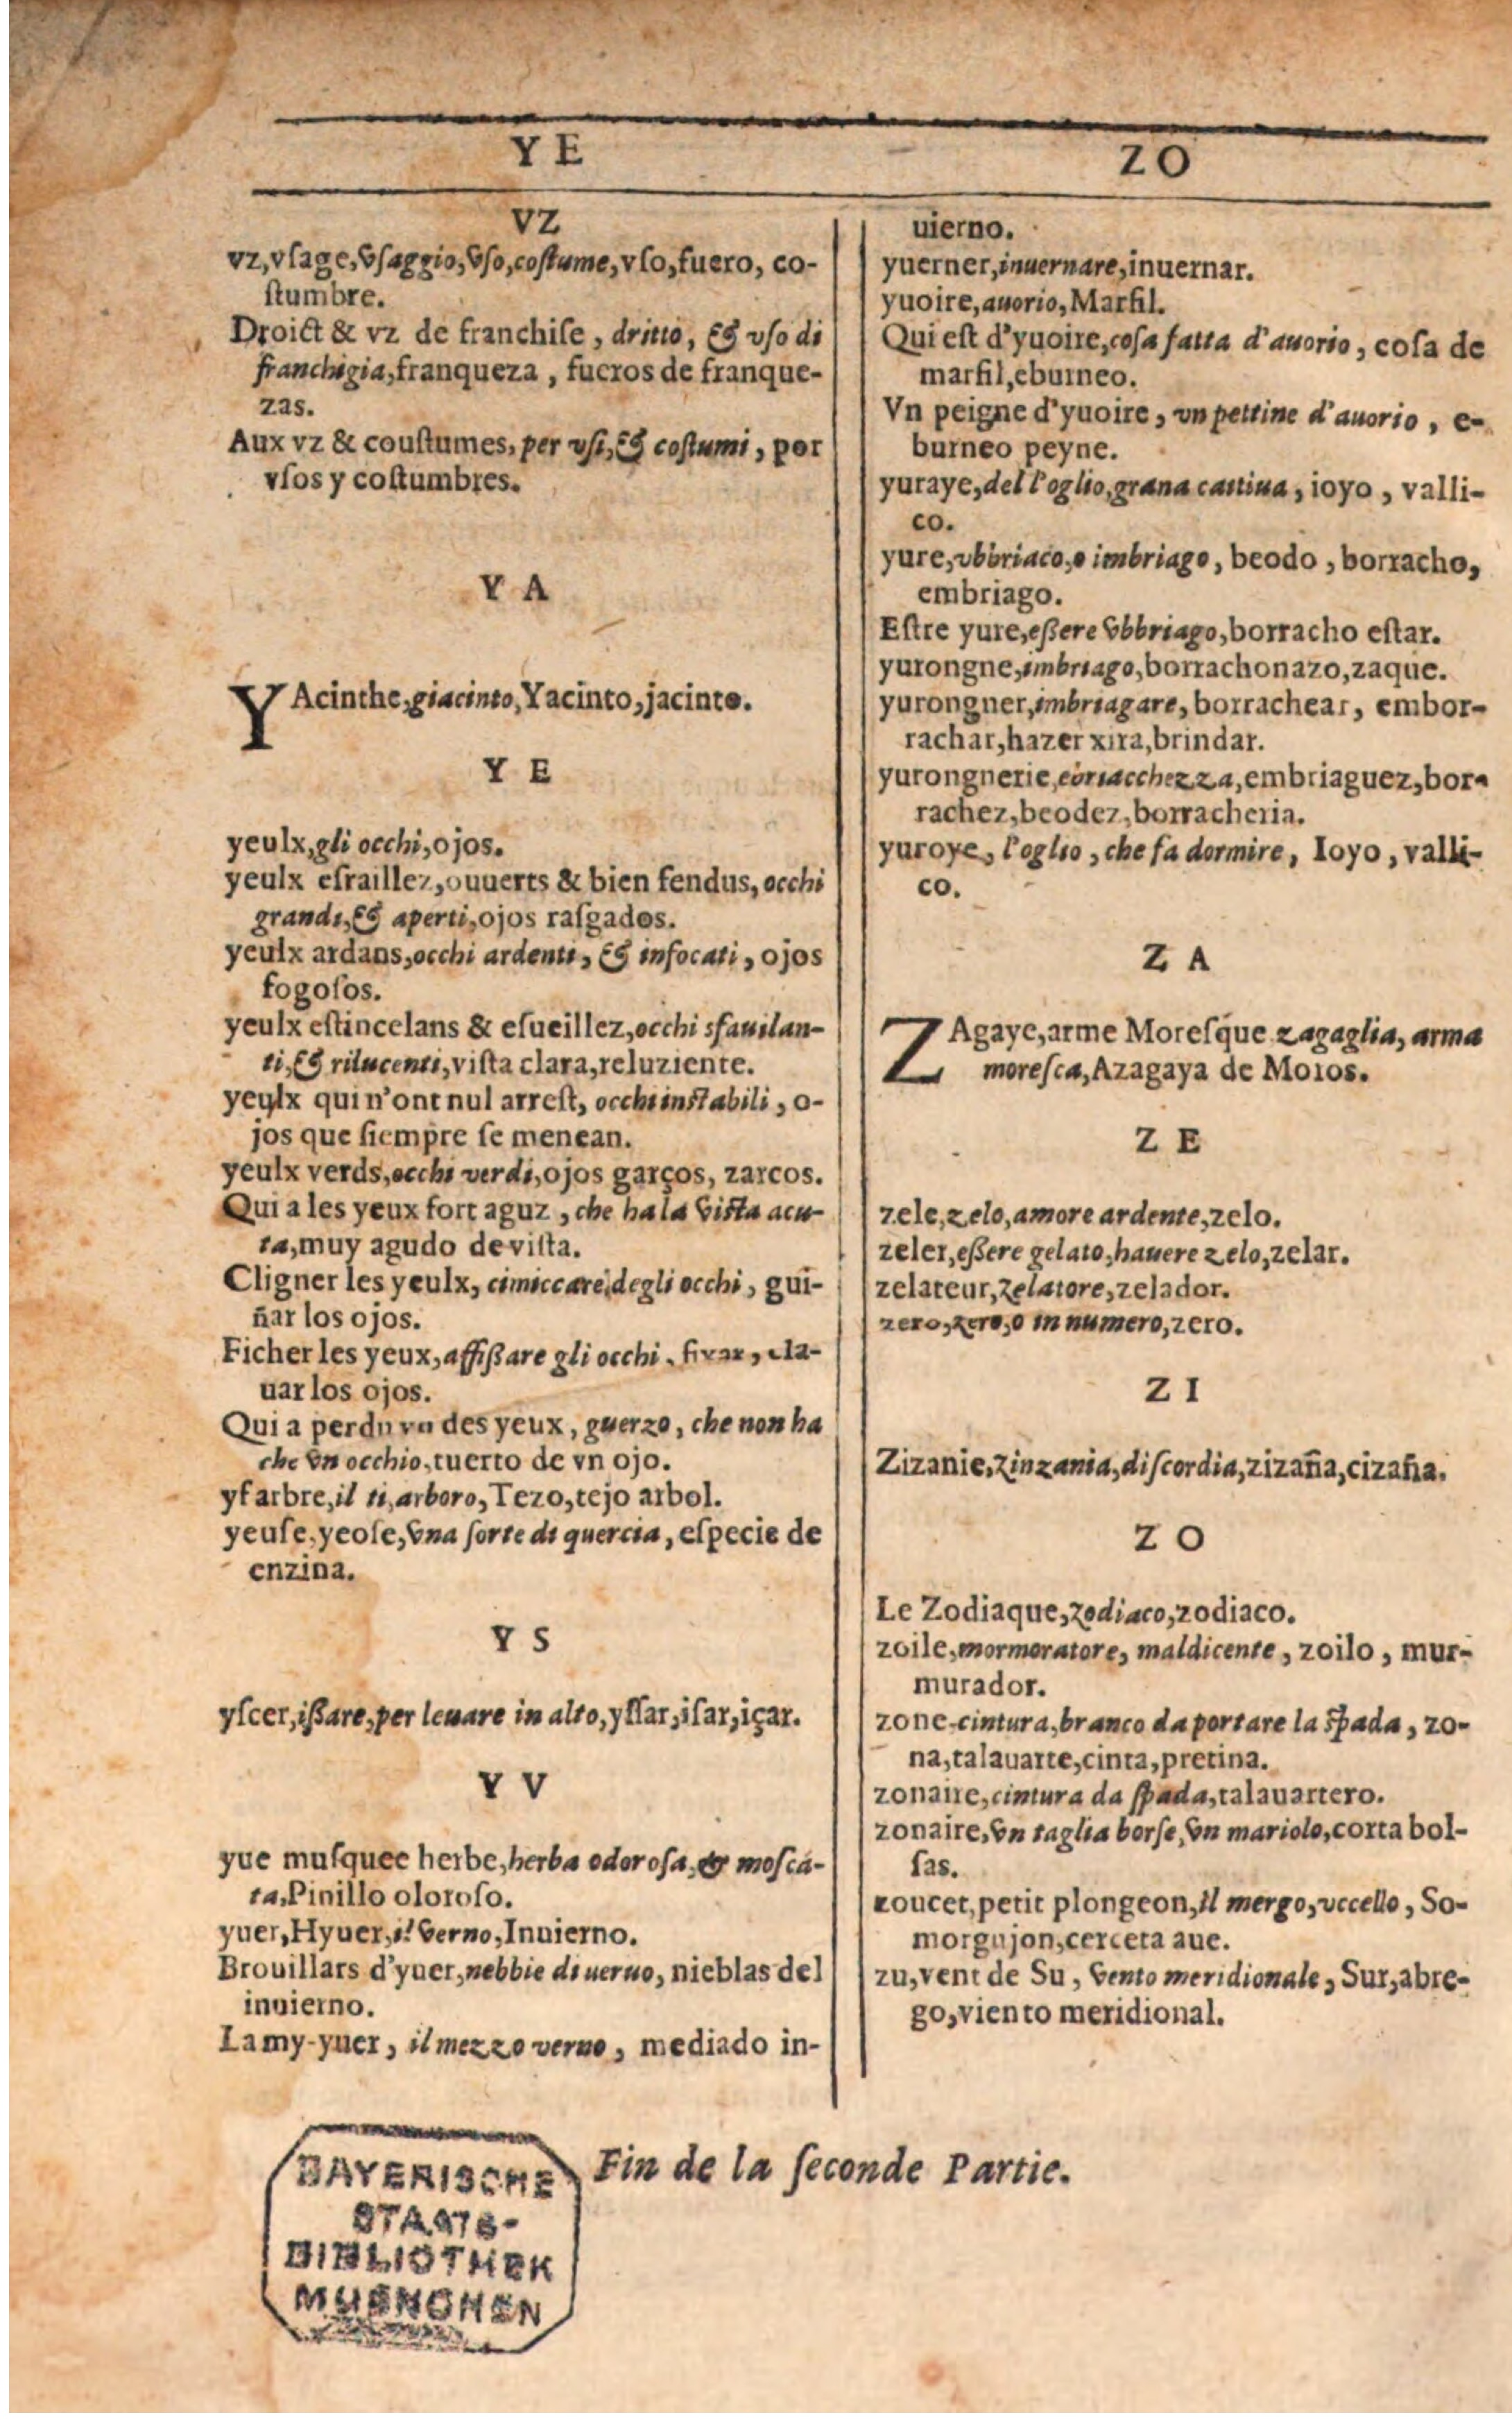 YE
ZO
VZ
vz,vſage,vſaggio,vſo,coſtume,vſo,fuero, co-
ſtumbre.
Droict & vz de franchiſe, dritto, & vſo di
franchigia,franqueza, fueros de franque-
zas.
Aux vz & couſtumes, per vſi,& coſtumi, por
vſos y coſtumbres.
Y A
YAcinthe,giacinto,Yacinto,jacinto.
Y E
yeulx,gli occhi,ojos.
yeulx eſraillez,ouuerts & bien fendus, occhi
grandi,& aperti,ojos raſgados.
yeulx ardans,occhi ardenti, & infocati, ojos
fogoſos.
yeulx eſtincelans & eſueillez,occhi sfauilan-
ti,& rilucenti,viſta clara,reluziente.
yeulx qui n'ont nul arreſt, occhi inſtabili, o-
jos que ſiempre ſe menean.
yeulx verds,occhi verdi,ojos garços, zarcos.
Qui a les yeux fort aguz, che ha la viſta acu-
ta,muy agudo de viſta.
Cligner les yeulx, cimiccare degli occhi, gui-
ñar los ojos.
Ficher les yeux,affißare gli occhi, fixar, cla-
uar los ojos.
Qui a perdu vn des yeux, guerzo, che non ha
che vn occhio,tuerto de vn ojo.
yf arbre,il ti,arboro,Tezo,tejo arbol.
yeuſe,yeoſe,vna ſorte di quercia, eſpecie de
enzina.
Y S
yſcer,ißare,per leuare in alto,yſſar,iſar,içar.
Y V
yue muſquee herbe,herba odoroſa,& moſca-
ta,Pinillo oloroſo.
yuer,Hyuer,il verno,Inuierno.
Brouillars d'yuer,nebbie di uerno, nieblas del
inuierno.
La my-yuer, il mezzo verno, mediado in-
uierno.
yuerner,inuernare,inuernar.
yuoire,auorio,Marfil.
Qui eſt d'yuoire,coſa fatta d'auorio, coſa de
marfil,eburneo.
Vn peigne d'yuoire, vn pettine d'auorio, e-
burneo peyne.
yuraye,del l'oglio,grana cattiua, ioyo, valli-
co.
yure,vbbriaco,o imbriago, beodo, borracho,
embriago.
Eſtre yure,eßere vbbriago,borracho eſtar.
yurongne,imbriago,borrachonazo,zaque.
yurongner,imbriagare, borrachear, embor-
rachar,hazer xira,brindar.
yurongnerie,ebriacchezza,embriaguez,bor-
rachez,beodez,borracheria.
yuroye, l'oglio, che fa dormire, Ioyo, valli-
co.
Z A
ZAgaye,arme Moreſque zagaglia, arma
moreſca,Azagaya de Moros.
Z E
zele,zelo,amore ardente,zelo.
zeler,eßere gelato,hauere zelo,zelar.
zelateur,zelatore,zelador.
zero,zero,o in numero,zero.
Z I
Zizanie,zinzania,diſcordia,zizaña,cizaña.
Z O
Le Zodiaque,zodiaco,zodiaco.
zoile,mormoratore, maldicente, zoilo, mur-
murador.
zone,cintura,branco da portare la ſpada, zo-
na,talauarte,cinta,pretina.
zonaire,cintura da ſpada,talauartero.
zonaire,vn taglia borſe,vn mariolo,corta bol-
ſas.
zoucet,petit plongeon,il mergo,vccello, So-
morgujon,cerceta aue.
zu,vent de Su, vento meridionale, Sur,abre-
go,viento meridional.
Fin de la ſeconde Partie.
BAYERISCHE
STAATS-
BIBLIOTHEK
MUENCHEN